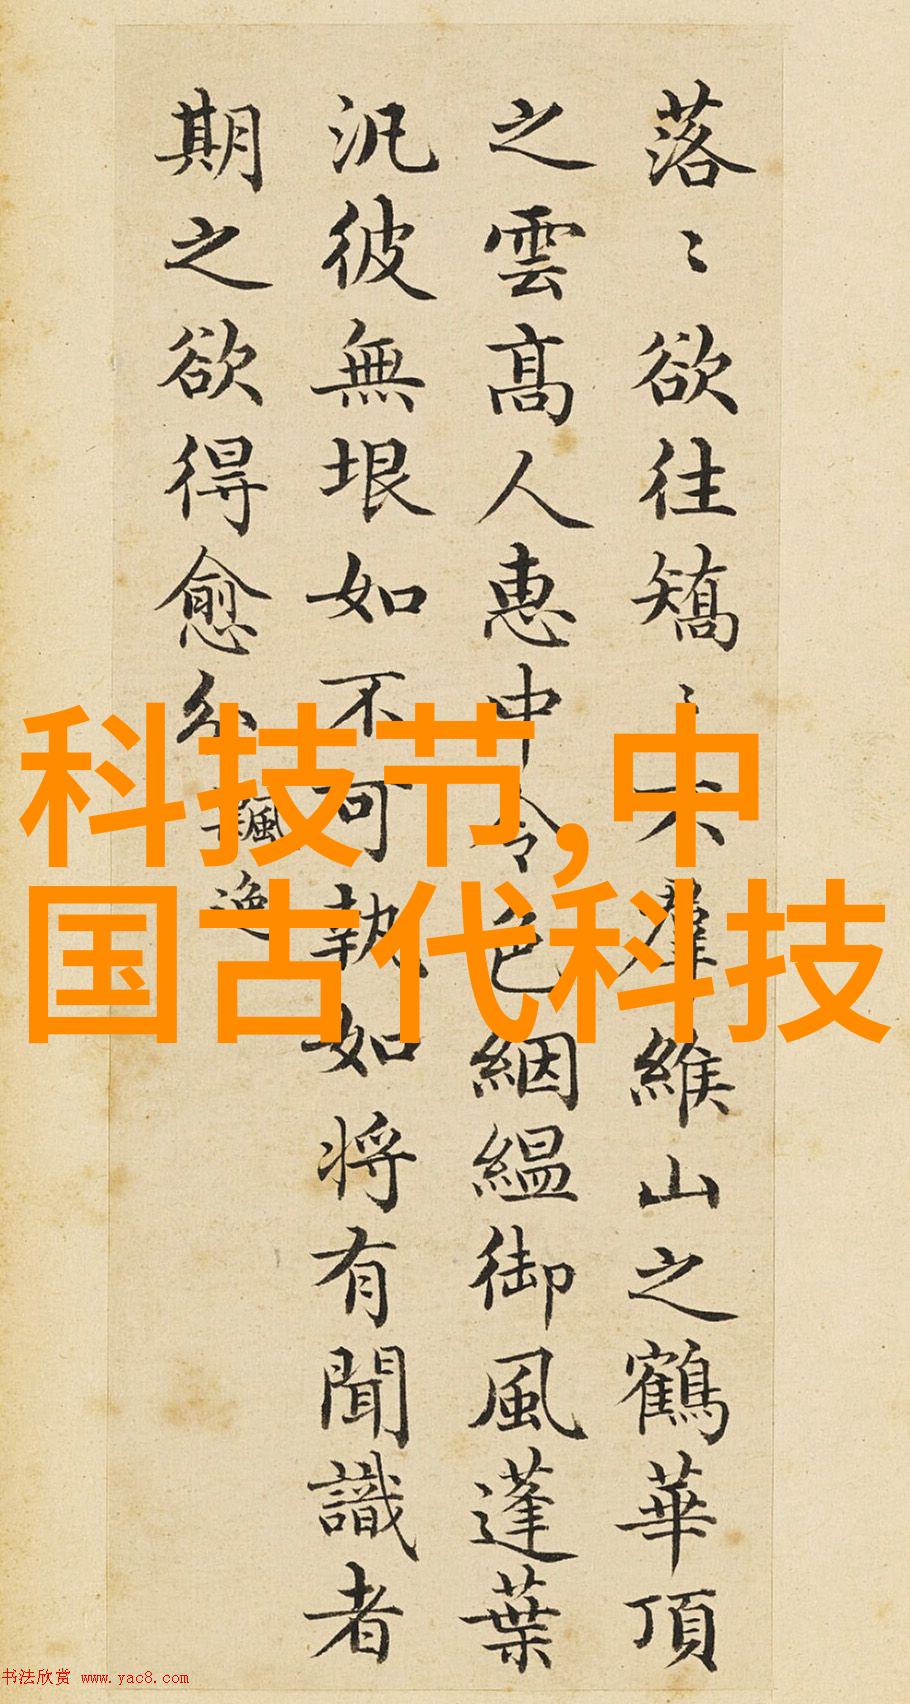 落〻欲往矯〻不羣緱山之鶴華頂
之雲髙人惠中令色絪緼御風蓬葉
汎彼無垠如不可執如将有聞識者
期之欲得愈分 飄逸
科技节,中
国古代科技
书法欣赏 www.yac8.com